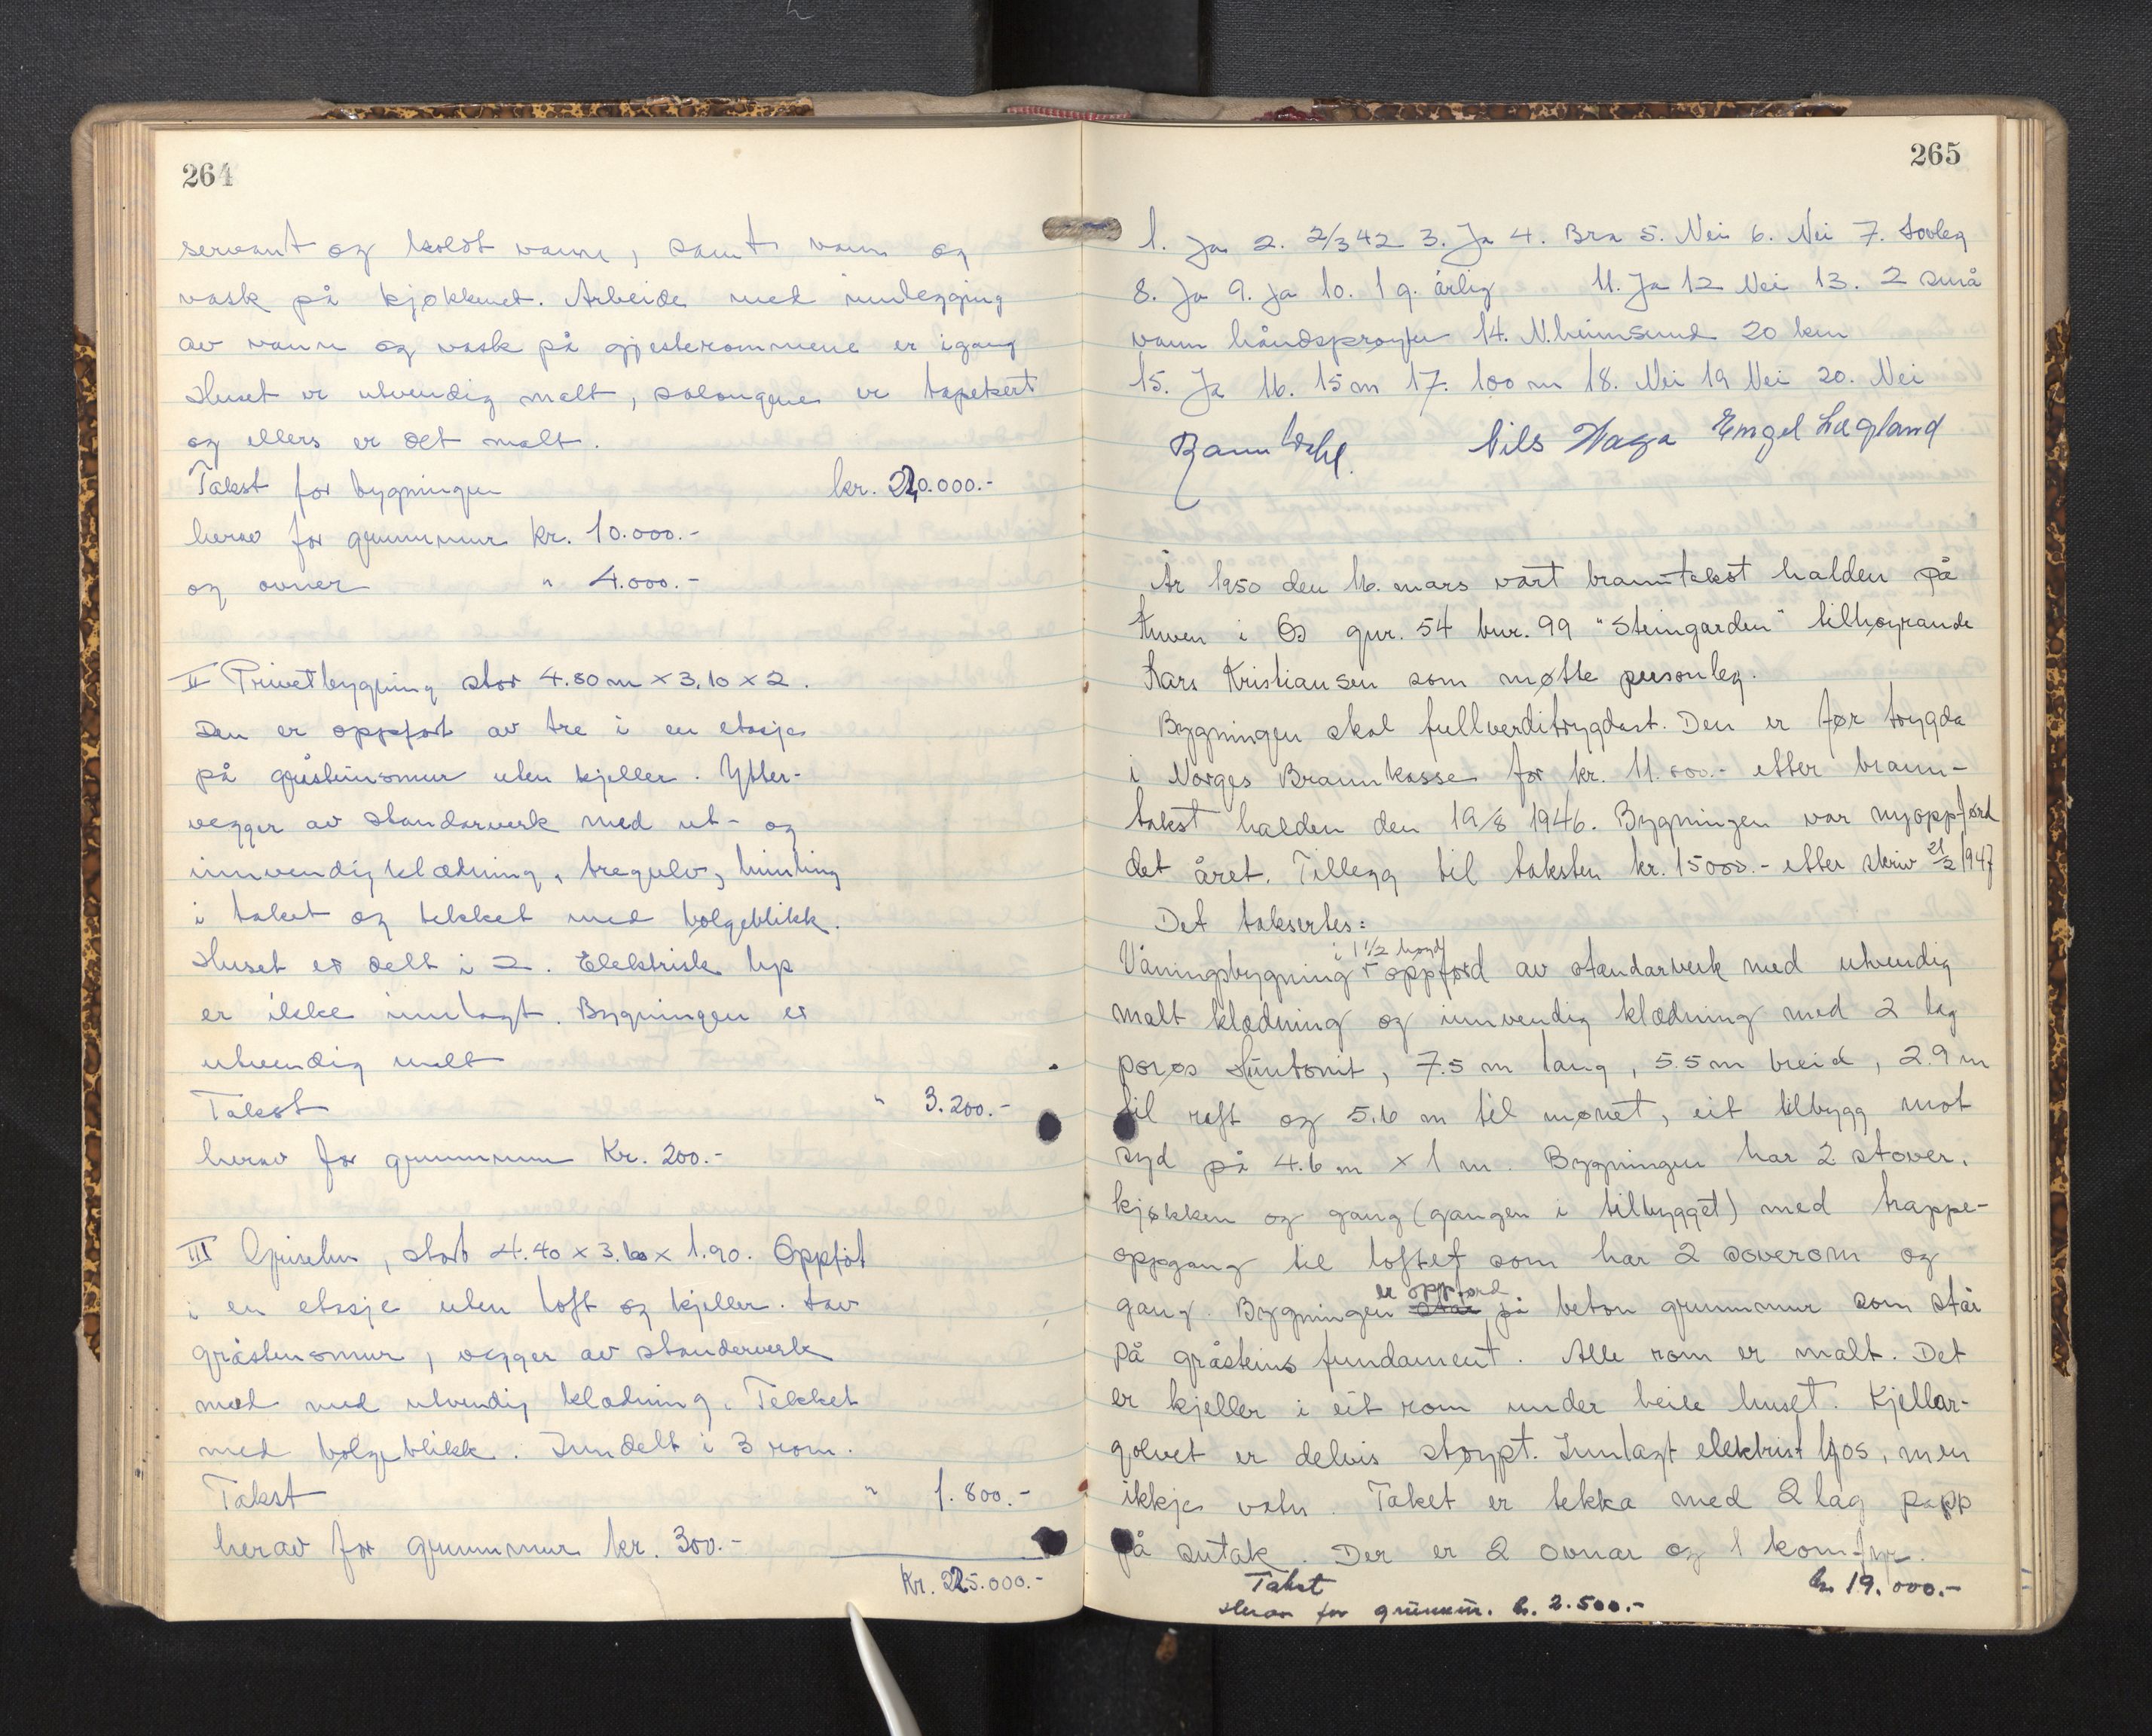 264
servant og koldt vann, samt vann og
vask på kjøkkenet. Arbeide med innlegging
av vann og vask på gjesterommene er igang
Huset er utvendig malt, salongene er tapetsert
og ellers er det malt.
Takst for bygningen kr. 220.000.-
herav for grunnmur kr. 10.000.-
og ovner " 4.000.-
II Privetbygning stor 4.80 m x 3.10 x 2.
Den er oppført av tre i en etasje
på gråsteinsmur uten kjeller. Ytter-
vegger av standarverk med ut- og
innvendig klædning, tregulv, himling
i taket og tekket med bølgeblikk.
Huset er delt i 2. Elektrisk lys
er ikke innlagt. Bygningen er
utvendig malt
Takst " 3.200.-
herav for grunnmur Kr. 200.-
III Grisehus, stort 4.40 x 3.60 x 1.90. Oppført
i en etasje uten loft og kjeller. Lav
gråstensmur, vegger av standerverk
med med utvendig klædning. Tekket
med bølgeblikk. Inndelt i 3 rom.
Takst " 1.800.-
herav for grunnmur kr. 300.-
Kr. 225.000.-
265
1. Ja 2. 2/3 42 3. Ja 4. Bra 5. Nei 6. Nei 7. Lovleg
8. Ja 9. Ja 10. 1 g. årlig 11. Ja 12 Nei 13. 2 små
vann håndsprøyter 14. N.heimsund 20 km
15. Ja 16. 15 m 17. 100 m 18. Nei 19 Nei 20. Nei
Nils Haga Engel Lægland
År 1950 den 16. mars vart branntakst halden på
Tuven i Os gnr. 54 bnr. 99 "Steingarden" tilhøyrande
Lars Kristiansen som møtte personleg.
Bygningen skal fullverditrygdast. Den er før trygda
i Norges Brannkasse for kr. 11.000.- etter brann-
takst halden den 19/8 1946. Bygningen var nyoppførd
det året. Tillegg til taksten kr. 15000.- etter skriv 21/2 1947
Det taksertes:
i 1 1/2 høgd
Våningsbygning oppførd av standarverk med utvendig
malt klædning og innvendig klædning med 2 lag
porøs Huntonit, 7.5 m lang, 5.5 m breid, 2.9 m
til raft og 5.6 m til mønet, eit tilbygg mot
syd på 4.6 m x 1 m. Bygningen har 2 stover,
kjøkken og gang (gangen i tilbygget) med trappe-
oppgang til loftet som har 2 soverom og
er oppførd
gang. Bygningen står på beton grunnmur som står
på gråsteins fundament. Alle rom er malt. Det
er kjeller i eit rom under heile huset. Kjellar-
golvet er delvis støypt. Innlagt elektrist ljos, men
ikkje vatn. Taket er tekka med 2 lag papp
på sutak. Der er 2 ovnar og 1 komfyr.
Takst kr 19.000.-
Herav for grunnm. kr. 2.500.-